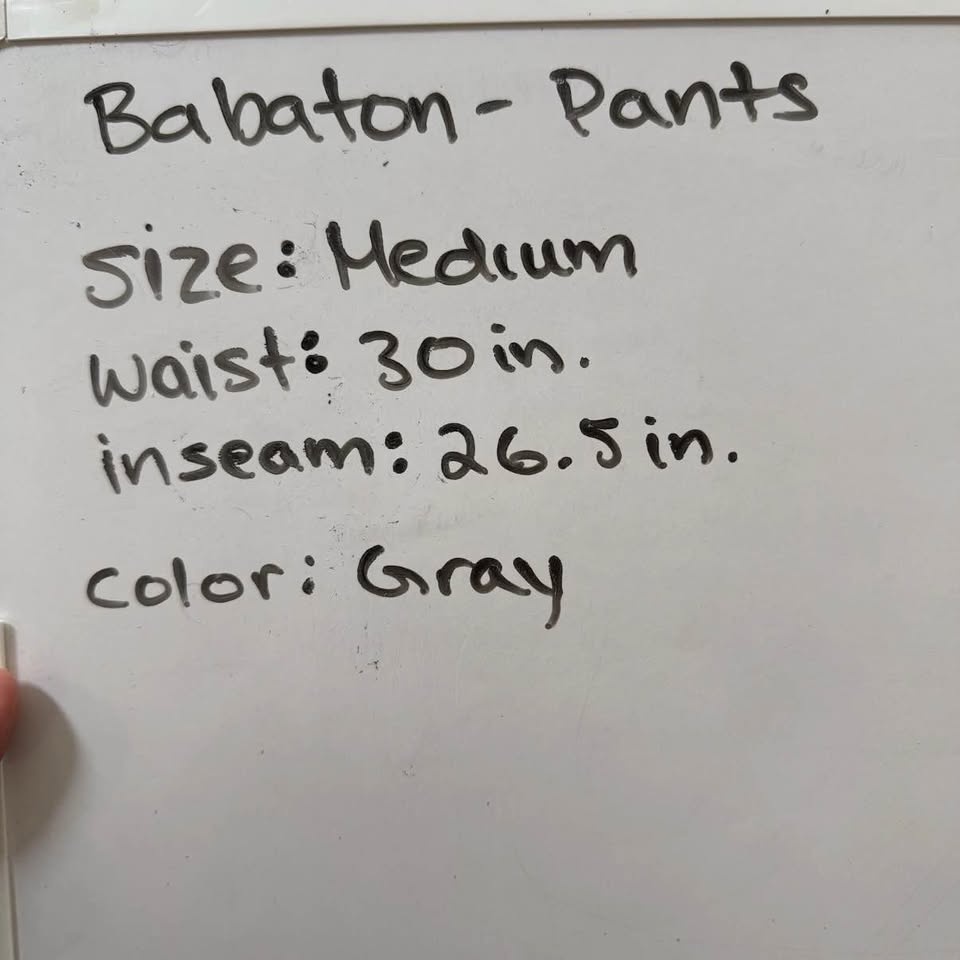 Babaton - Pants
Size: Medium
waist: 30 in.
inseam: 26.5 in.
color: Gray